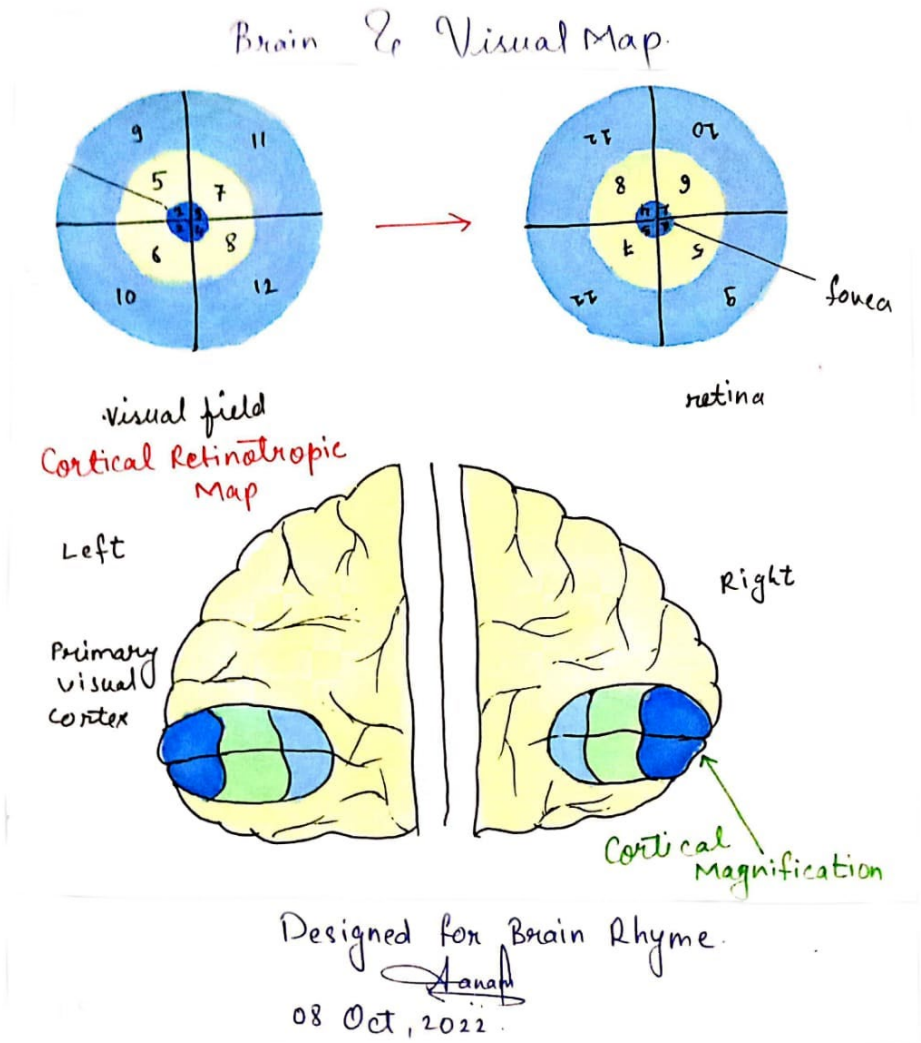 Brain & Visual Map.
9
11
5
7
6
8
10
12
8
6
7
5
9
fovea
visual field
retina
Cortical Retinotropic
Map
Left
Right
Primary
visual
cortex
Cortical
Magnification
Designed for Brain Rhyme.
08 Oct, 2022.